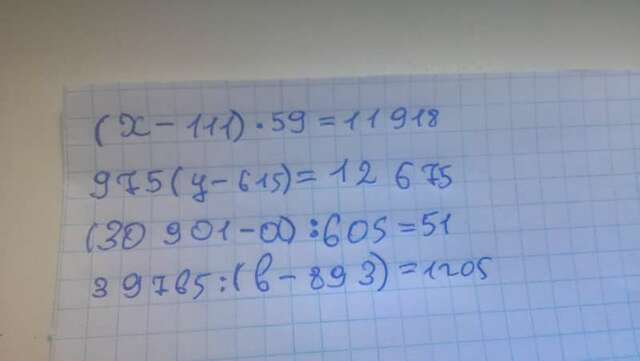 (x-111)·59=11918
975(y-615)=12 675
(30 901-a):605=51
39765:(b-893)=1205